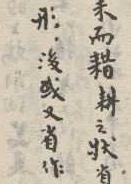 耒而耤耕之狀省
形．後或又省作